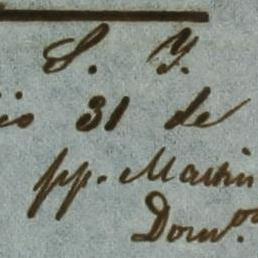 S. Y.
io 31 de
pp. Martin
Domº.